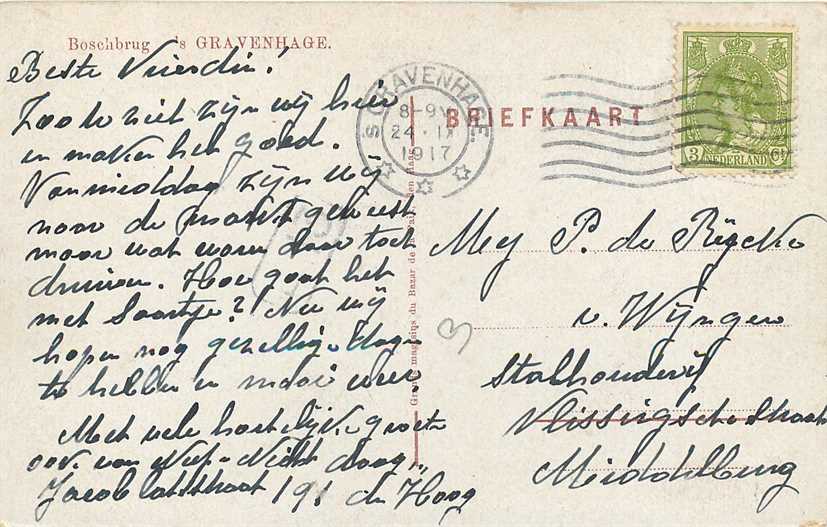 Boschbrug 's GRAVENHAGE.
Beste Vriendin!
Zoo te ziet zijn wij hier
en maken het goed.
Vanmiddag zijn wij
naar de markt geweest
maar wat waren daar toch
druiven. Hoe gaat het
met Saartje? Nu wij
hopen nog gezellige dagen
te hebben en mooi weer
Met vele hartelijke groeten
ook van
Jacob Catsstraat 191 den Haag
S GRAVENHAGE.
8-9V
24 IX
1917
BRIEFKAART
3 Ct
NEDERLAND
Grands magasins du Bazar de la Paix, Den Haag
Mej P. de Rijcke
v. Wijngen
Stalhouderij
Vlissingschestraat
Middelburg
3